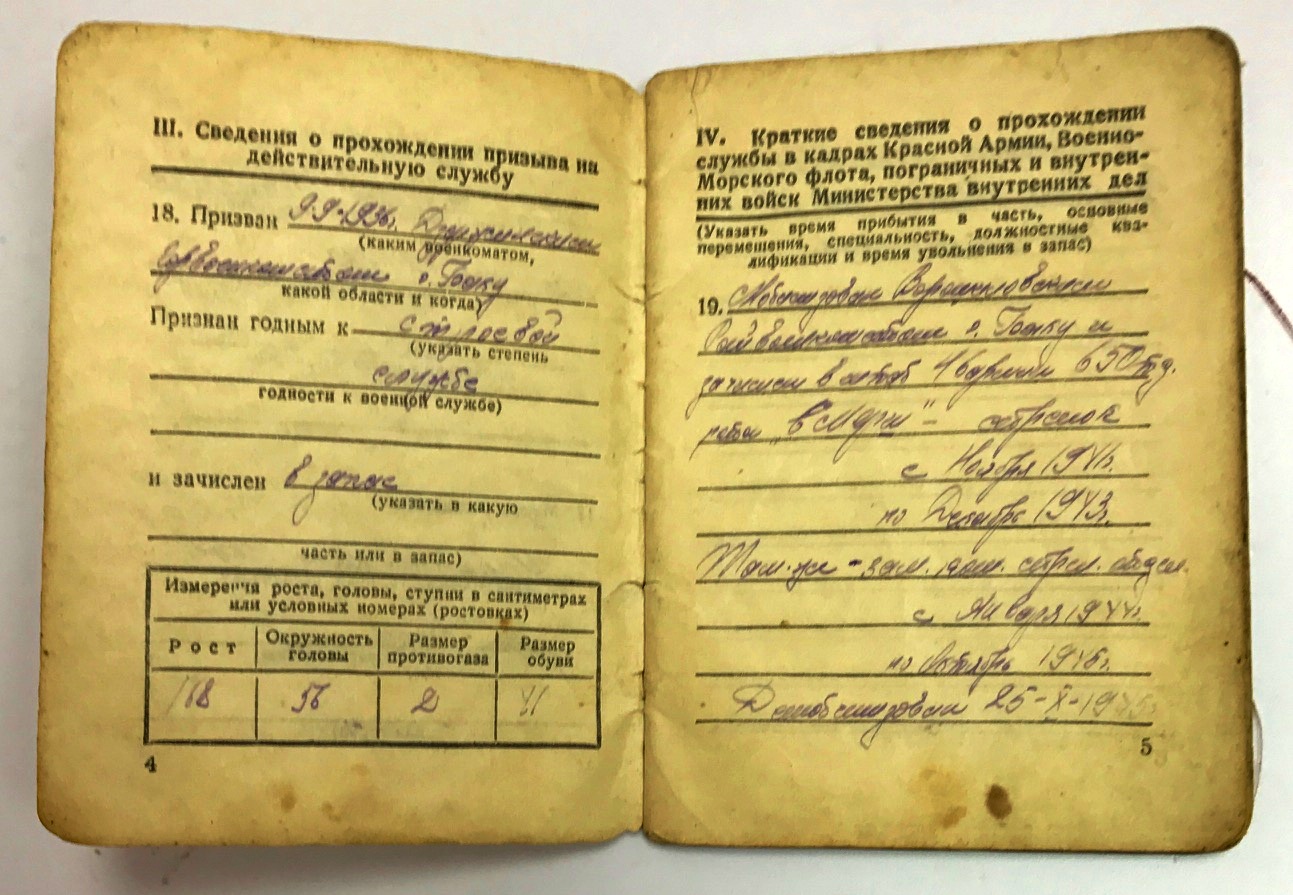 III. Сведения о прохождении призыва на
действительную службу
18. Призван 9-9-1936г.
(каким военкоматом,
г. Баку
какой области и когда)
Признан годным к строевой
(указать степень
службе
годности к военной службе)
и зачислен в запас
(указать в какую
часть или в запас)
Измерения роста, головы, ступни в сантиметрах
или условных номерах (ростовках)
Рост Окружность головы Размер противогаза Размер обуви
168 56 2 41
4
IV. Краткие сведения о прохождении
службы в кадрах Красной Армии, Военно-
Морского флота, пограничных и внутрен-
них войск Министерства внутренних дел
(Указать время прибытия в часть, основные
перемещения, специальность, должностные ква-
лификации и время увольнения в запас)
19. Мобилизован Ворошиловским
Райвоенкоматом г. Баку и
зачислен в 650
стрелок
с Ноября 1941г.
по Декабрь 1943г.
Там-же - зам. стрел.
с Января 1944г.
по Октябрь
Демобилизован 25-X-1945г.
5